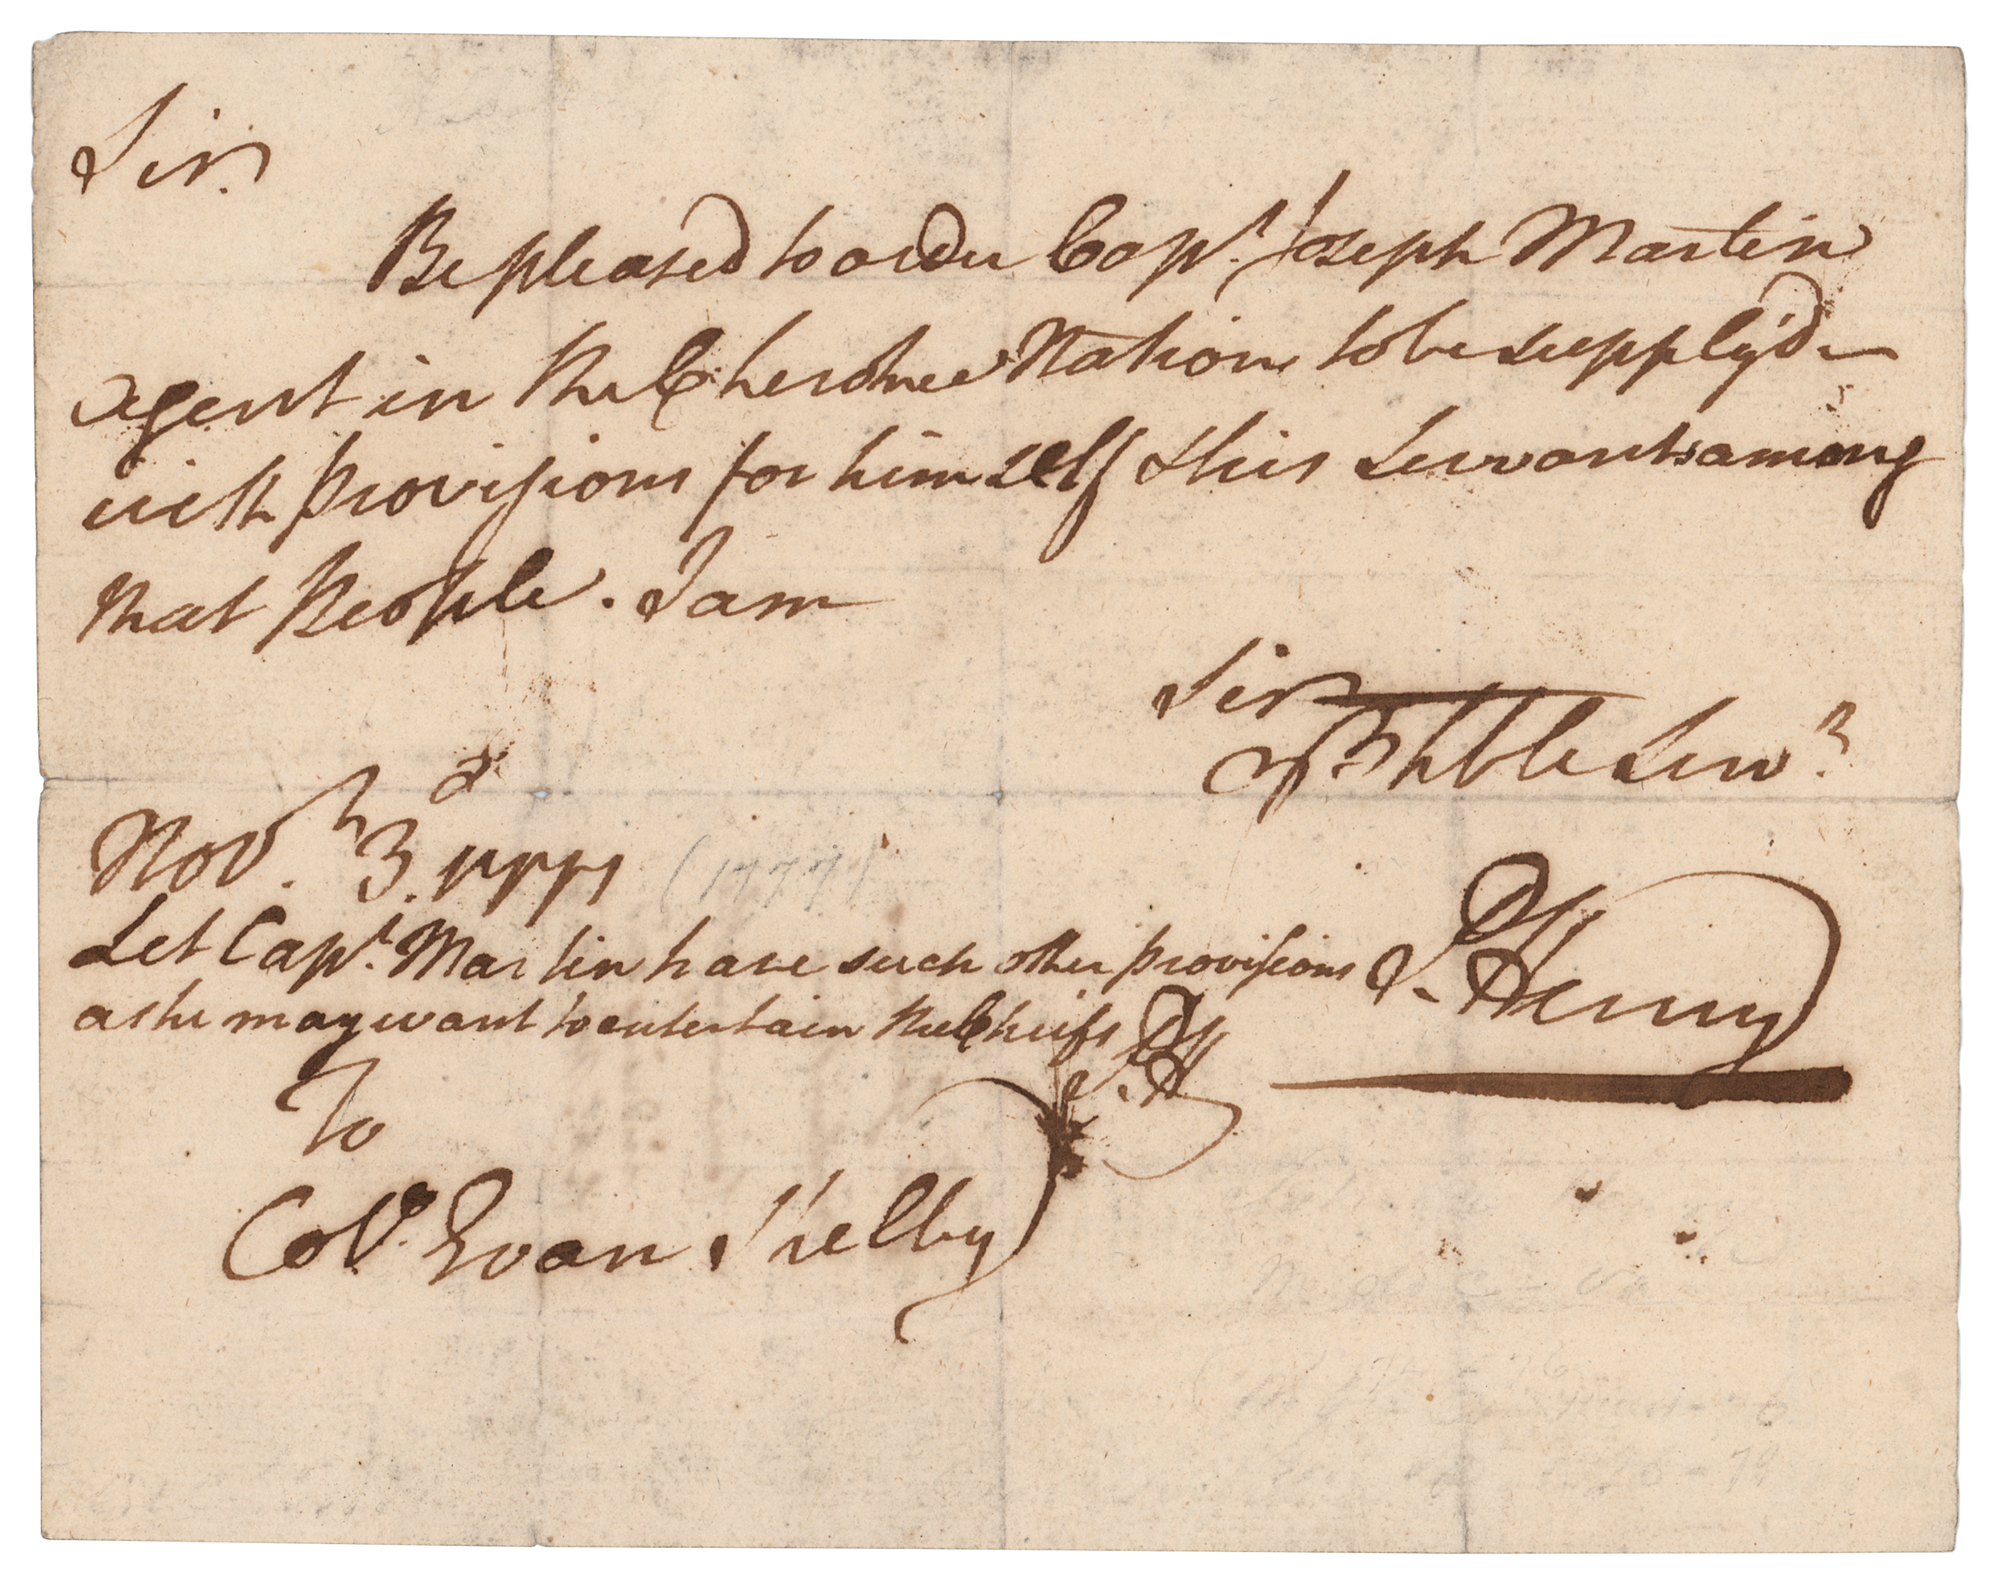 Sir.
Be pleased to order Capt. Joseph Martin
agent in the Cherokee Nation to be supply'd
with provisions for himself & his Servants among
that People. I am
Sir
Yr. hble Servt.
Novr. 3d. 1777 (1777)
P. Henry
Let Capt. Martin have such other provisions
as he may want to entertain the Cheifs P. H
To
Colo. Evan Shelby